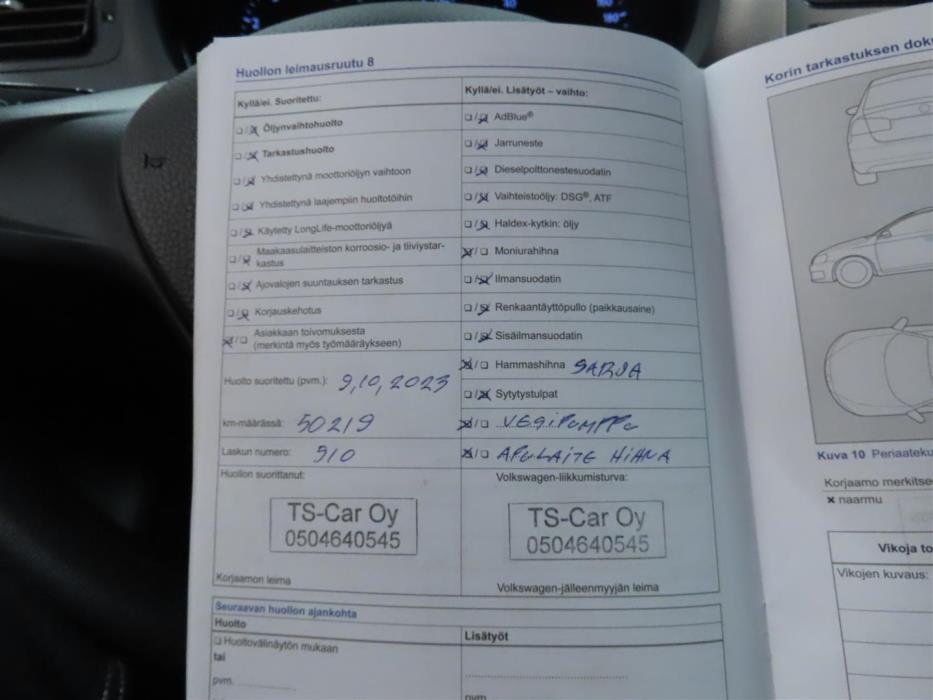 Huollon leimausruutu 8
Kyllä/ei. Suoritettu:
Öljynvaihtohuolto
Tarkastushuolto
Yhdistettynä moottoriöljyn vaihtoon
Yhdistettynä laajempiin huoltotöihin
Käytetty LongLife-moottoriöljyä
Maakaasulaitteiston korroosio- ja tiiviystar-
kastus
Ajovalojen suuntauksen tarkastus
Korjauskehotus
Asiakkaan toivomuksesta
(merkintä myös työmääräykseen)
Huolto suoritettu (pvm.): 9,10,2023
km-määrässä: 50219
Laskun numero: 910
Huollon suorittanut:
TS-Car Oy
0504640545
Korjaamon leima
Kyllä/ei. Lisätyöt – vaihto:
AdBlue®
Jarruneste
Dieselpolttonestesuodatin
Vaihteistoöljy: DSG®, ATF
Haldex-kytkin: öljy
Moniurahihna
Ilmansuodatin
Renkaantäyttöpullo (paikkausaine)
Sisäilmansuodatin
Hammashihna SARJA
Sytytystulpat
VESIPUMPPU
APULAITE HIHNA
Volkswagen-liikkumisturva:
TS-Car Oy
0504640545
Volkswagen-jälleenmyyjän leima
Seuraavan huollon ajankohta
Huolto
Huoltovälinäytön mukaan
tai
pvm.
Lisätyöt
pvm.
Korin tarkastuksen
Kuva 10
Korjaamo
× naarmu
Vikoja
Vikojen kuvaus: